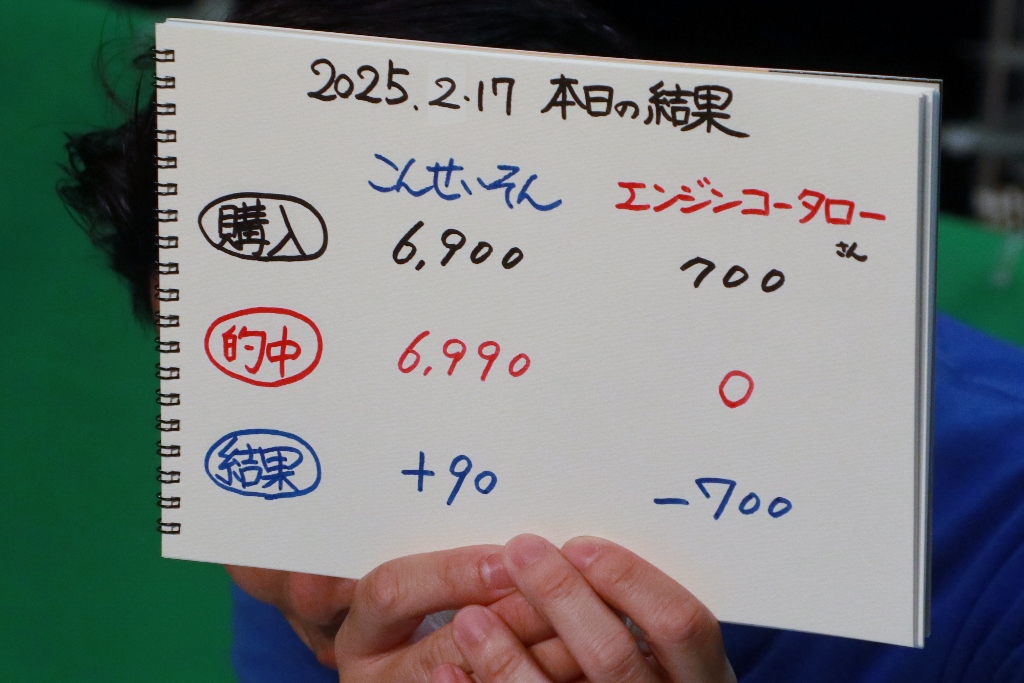 2025.2.17 本日の結果
こんせいそん エンジンコータロー
さん
購入 6,900 700
的中 6,990 0
結果 +90 -700